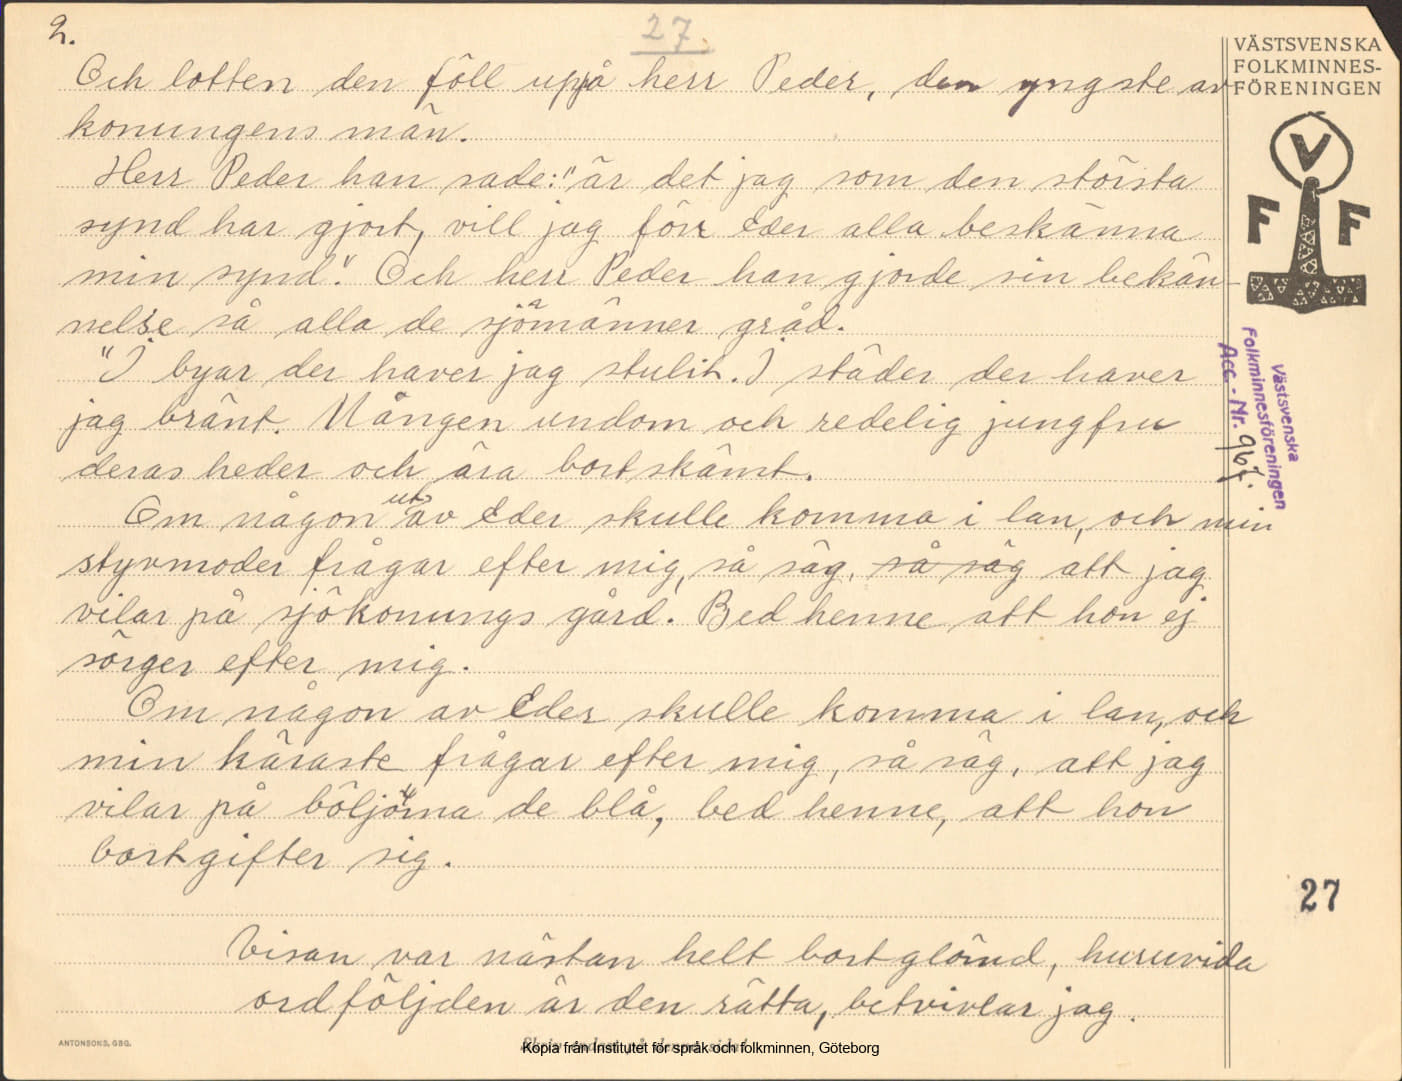 2.
27.
Och lotten den föll uppå herr Peder, den yngste av
konungens män.
Herr Peder han sade: "är det jag som den största
synd har gjort, vill jag förr Eder alla beskänna
min synd". Och herr Peder han gjorde sin bekän-
nelse så alla de sjömänner gråd.
"I byar der haver jag stulit. I städer der haver
jag bränt. Mången undom och redelig jungfru
deras heder och ära bortskämt.
Om någon ut av Eder skulle komma i lan, och min
styvmoder frågar efter mig, så säg, så säg att jag
vilar på sjökonungs gård. Bed henne att hon ej
sörger efter mig.
Om någon av Eder skulle komma i lan, och
min käraste frågar efter mig, så säg, att jag
vilar på böljorna de blå, bed henne, att hon
bortgifter sig.
Visan var nästan helt bortglömd, huruvida
ordföljden är den rätta, betvivlar jag.
VÄSTSVENSKA
FOLKMINNES-
FÖRENINGEN
V
F F
Västsvenska
Folkminnesföreningen
Acc.-Nr. 967.
27
ANTONSONS, GBG.
Kopia från Institutet för språk och folkminnen, Göteborg